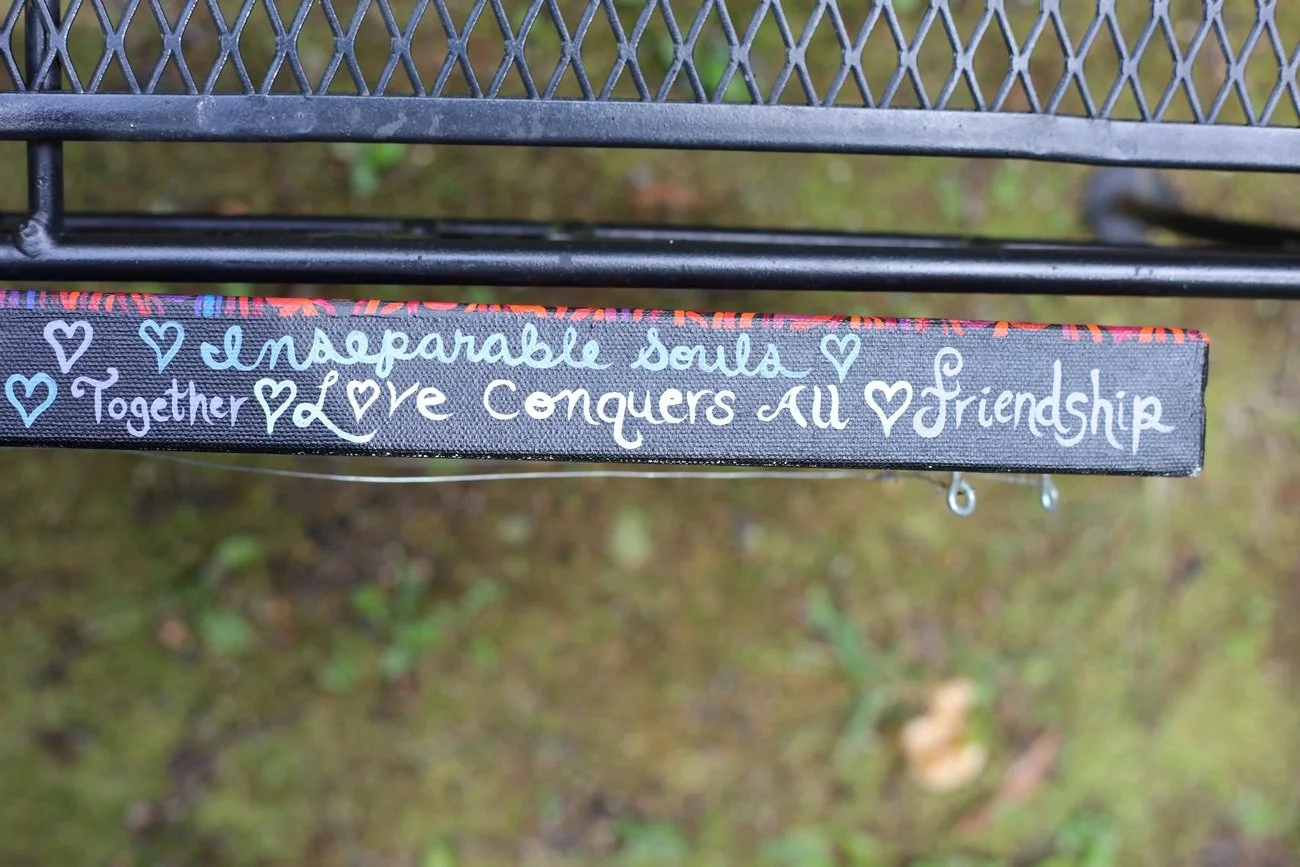 ♡ ♡ Inseparable Souls ♡
♡ Together ♡ L♡ve Conquers All ♡ Friendship